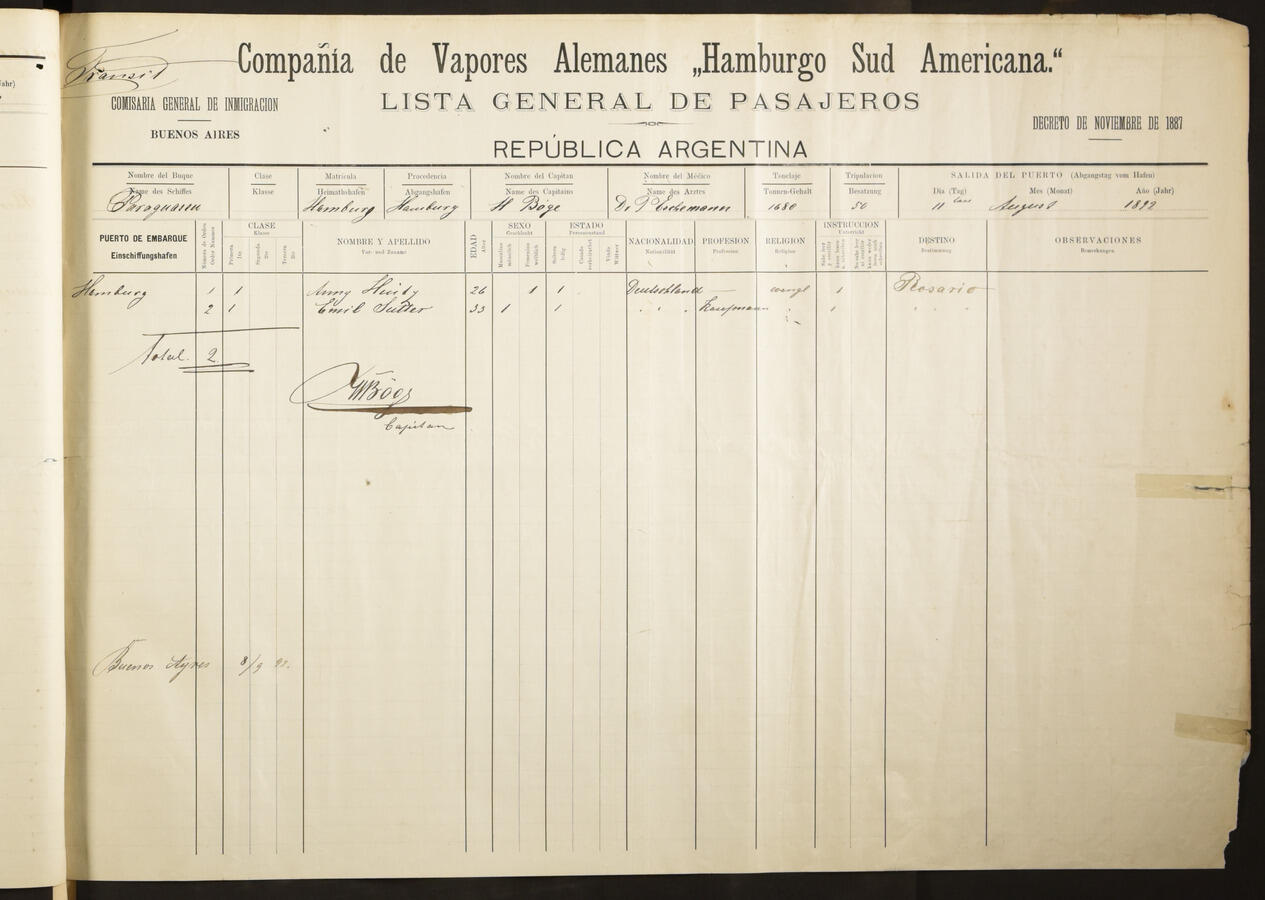 Transit
Compañía de Vapores Alemanes „Hamburgo Sud Americana.“
COMISARIA GENERAL DE INMIGRACION
BUENOS AIRES
LISTA GENERAL DE PASAJEROS
DECRETO DE NOVIEMBRE DE 1887
REPÚBLICA ARGENTINA
Nombre del Buque Clase Matrícula Procedencia Nombre del Capitan Nombre del Médico Tonelaje Tripulacion SALIDA DEL PUERTO (Abgangstag vom Hafen)
Name des Schiffes Klasse Heimathshafen Abgangshafen Name des Capitains Name des Arztes Tonnen-Gehalt Besatzung Dia (Tag) Mes (Monat) Año (Jahr)
Paraguassu Hamburg Hamburg H Böge Dr P Eschemann 1680 50 11 August 1892
PUERTO DE EMBARQUE
Einschiffungshafen
Número de Orden
Order Numero
CLASE
Klasse
Primera
Segunda
Tercera
NOMBRE Y APELLIDO
Vor- und Zuname
EDAD
Alter
SEXO
Geschlecht
Masculino
männlich
Femenino
weiblich
ESTADO
Personenstand
Soltero
ledig
Casado
verheirathet
Viudo
Wittwer
NACIONALIDAD
Nationalität
PROFESION
Profession
RELIGION
Religion
INSTRUCCION
Unterricht
DESTINO
Bestimmung
OBSERVACIONES
Bemerkungen
Hamburg 1 1 Anny 26 1 1 Deutschland — evangl 1 Rosario
2 1 Emil Sutter 33 1 1 " " " Kaufmann " 1 " " "
Total. 2
HBöge
Capitan
Buenos Ayres 8/9 92.